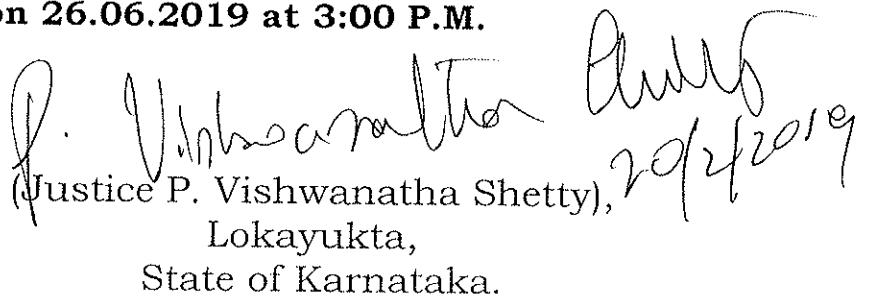 on 26.06.2019 at 3:00 P.M.
P. Vishwanatha Shetty
20/2/2019
(Justice P. Vishwanatha Shetty),
Lokayukta,
State of Karnataka.